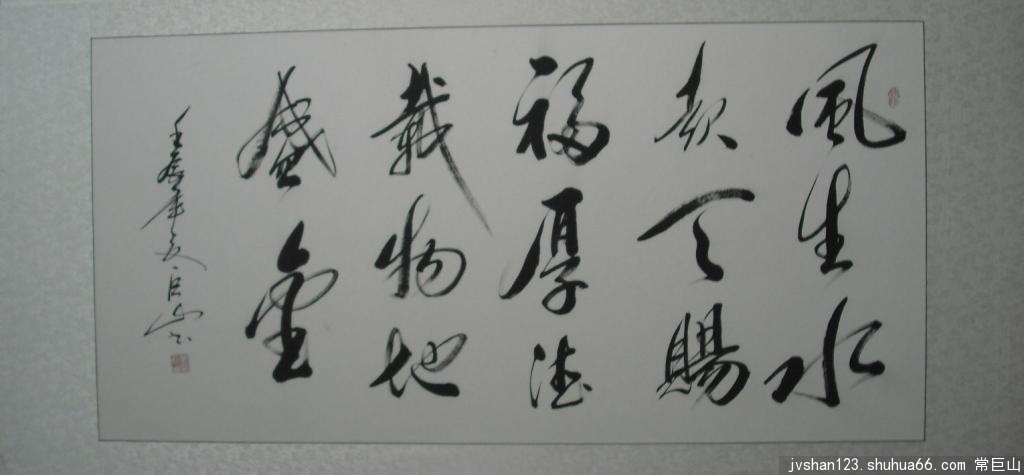 風生水
起天賜
福厚德
載物地
盛金
壬辰年夏巨山
jvshan123.shuhua66.com 常巨山